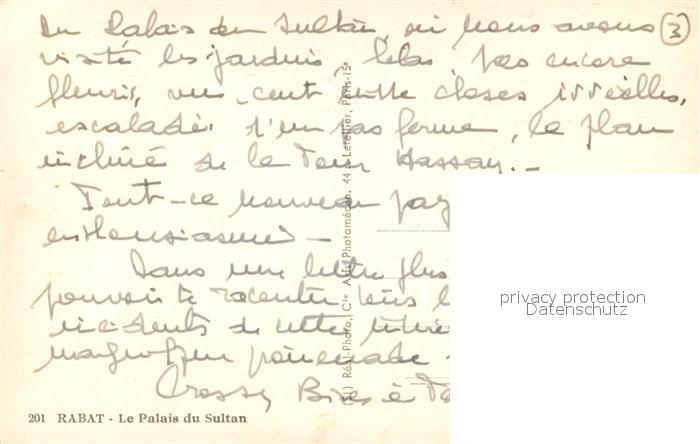 du Palais du Sultan, où nous avons (3)
visité les jardins, hélas pas encore
fleuris, vu cent mille choses
escaladé d'un pas ferme, le plan
incliné de la Tour Hassan. –
Tout – ce nouveau
enthousiasmés –
Dans une lettre plus
pouvoir te raconter tous
incidents de cette
magnifique promenade –
Bises à
201 RABAT - Le Palais du Sultan
Réal-Photo, Cie Arts Photomécan. 44 r. Letellier, Paris-15e
privacy protection
Datenschutz